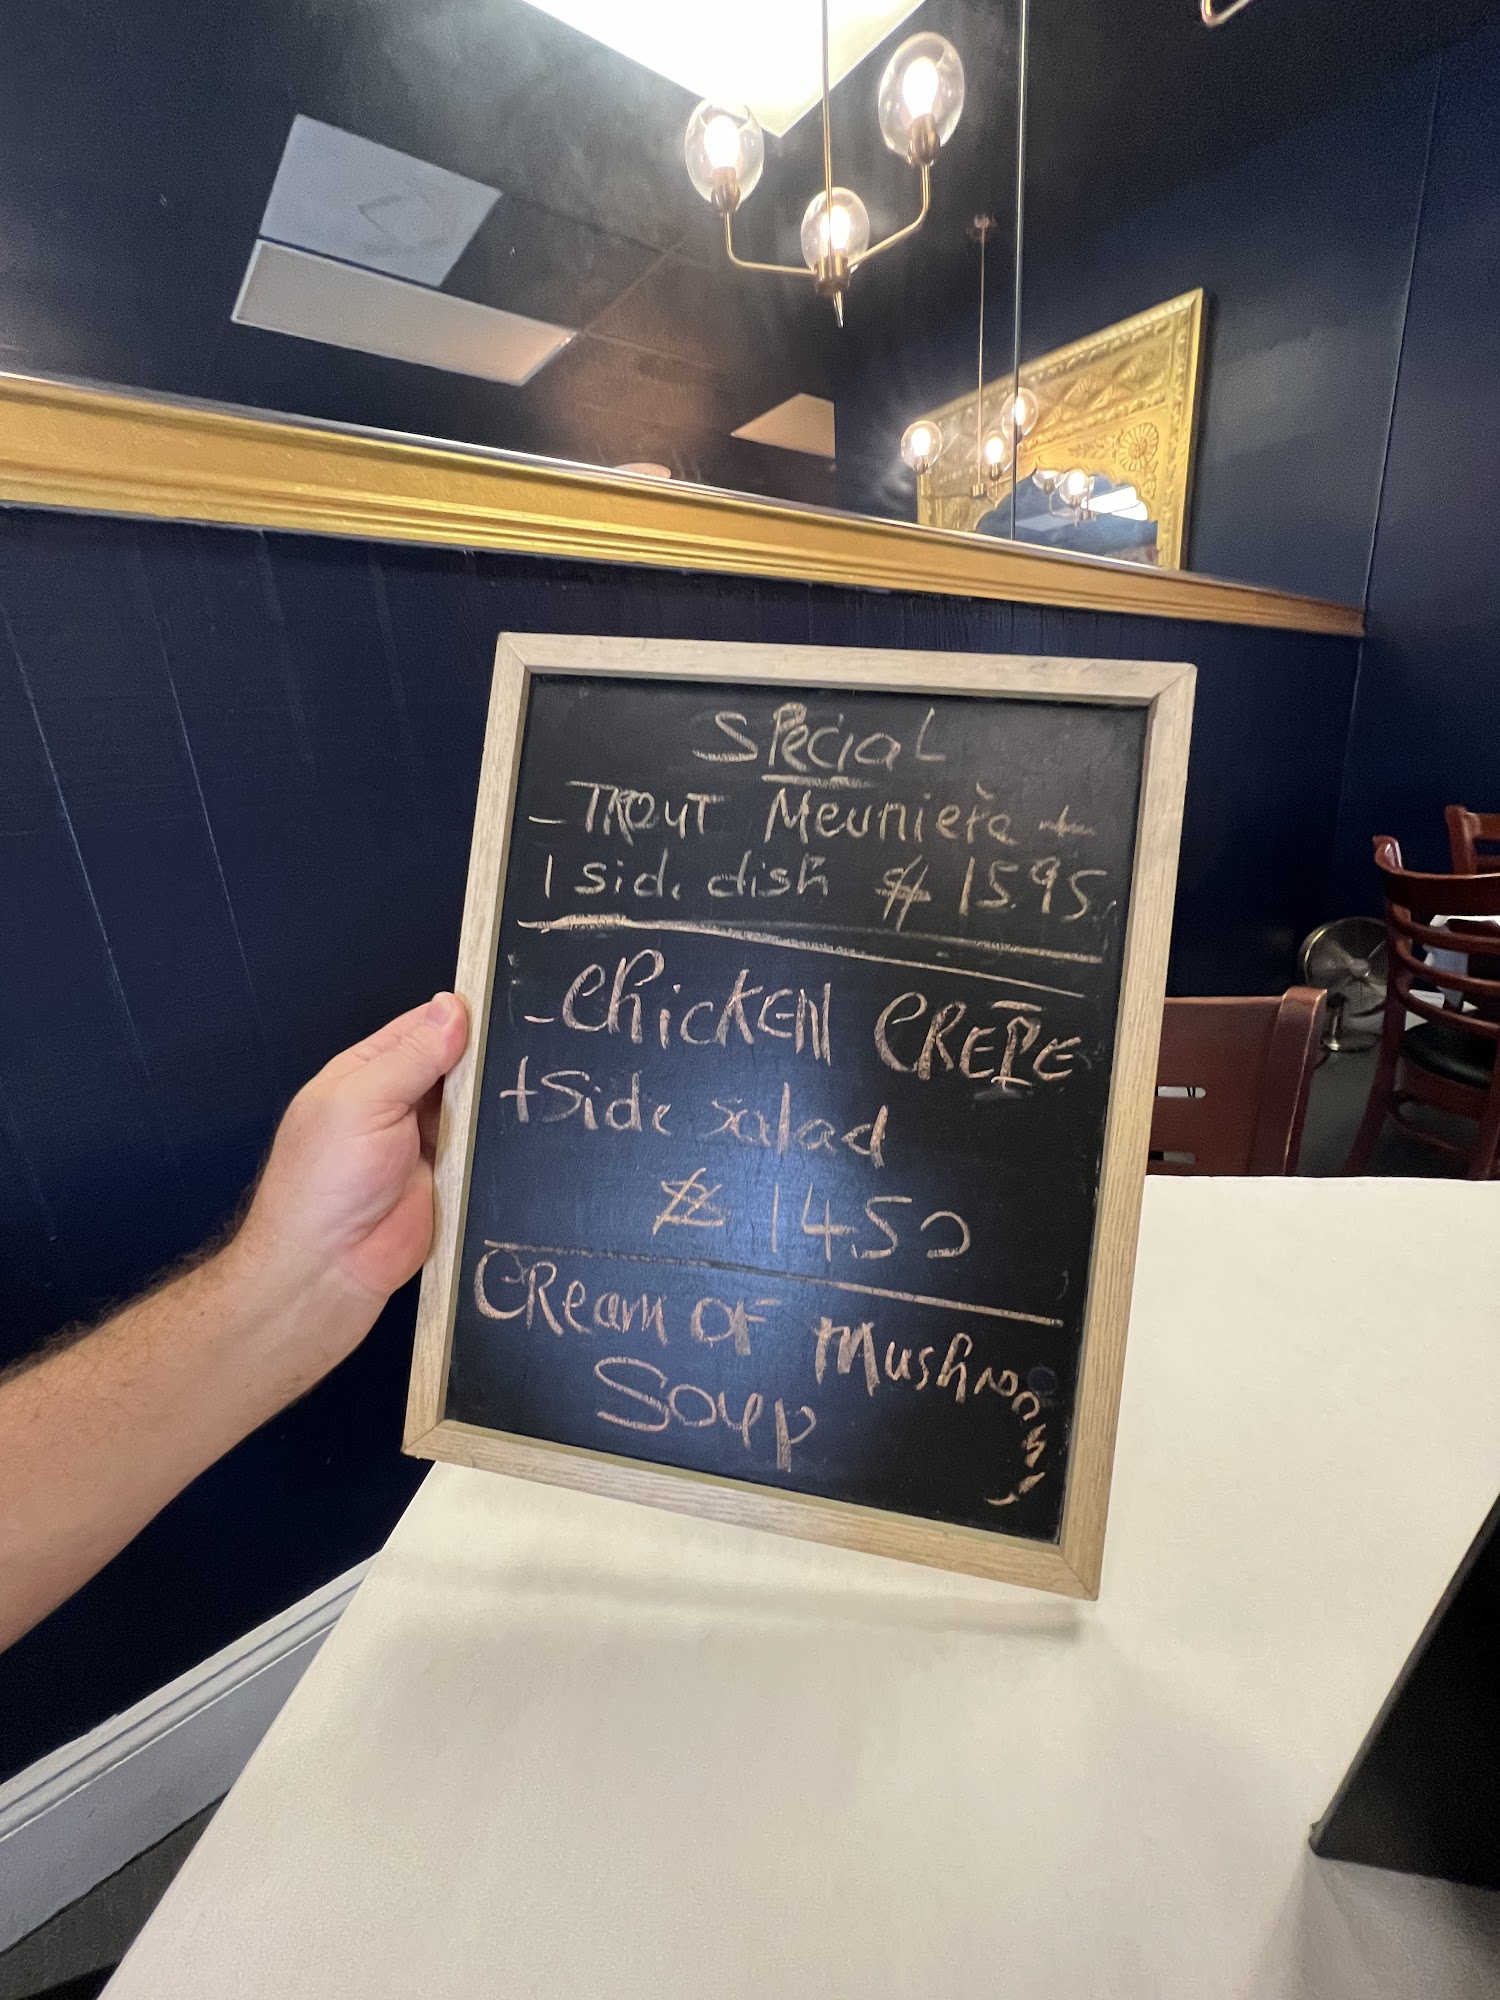 Special
- TROUT Meunière +
1 side dish $ 15.95
- Chicken CREPE
+ Side salad
$ 14.50
CReam OF Mushrooms
Soup